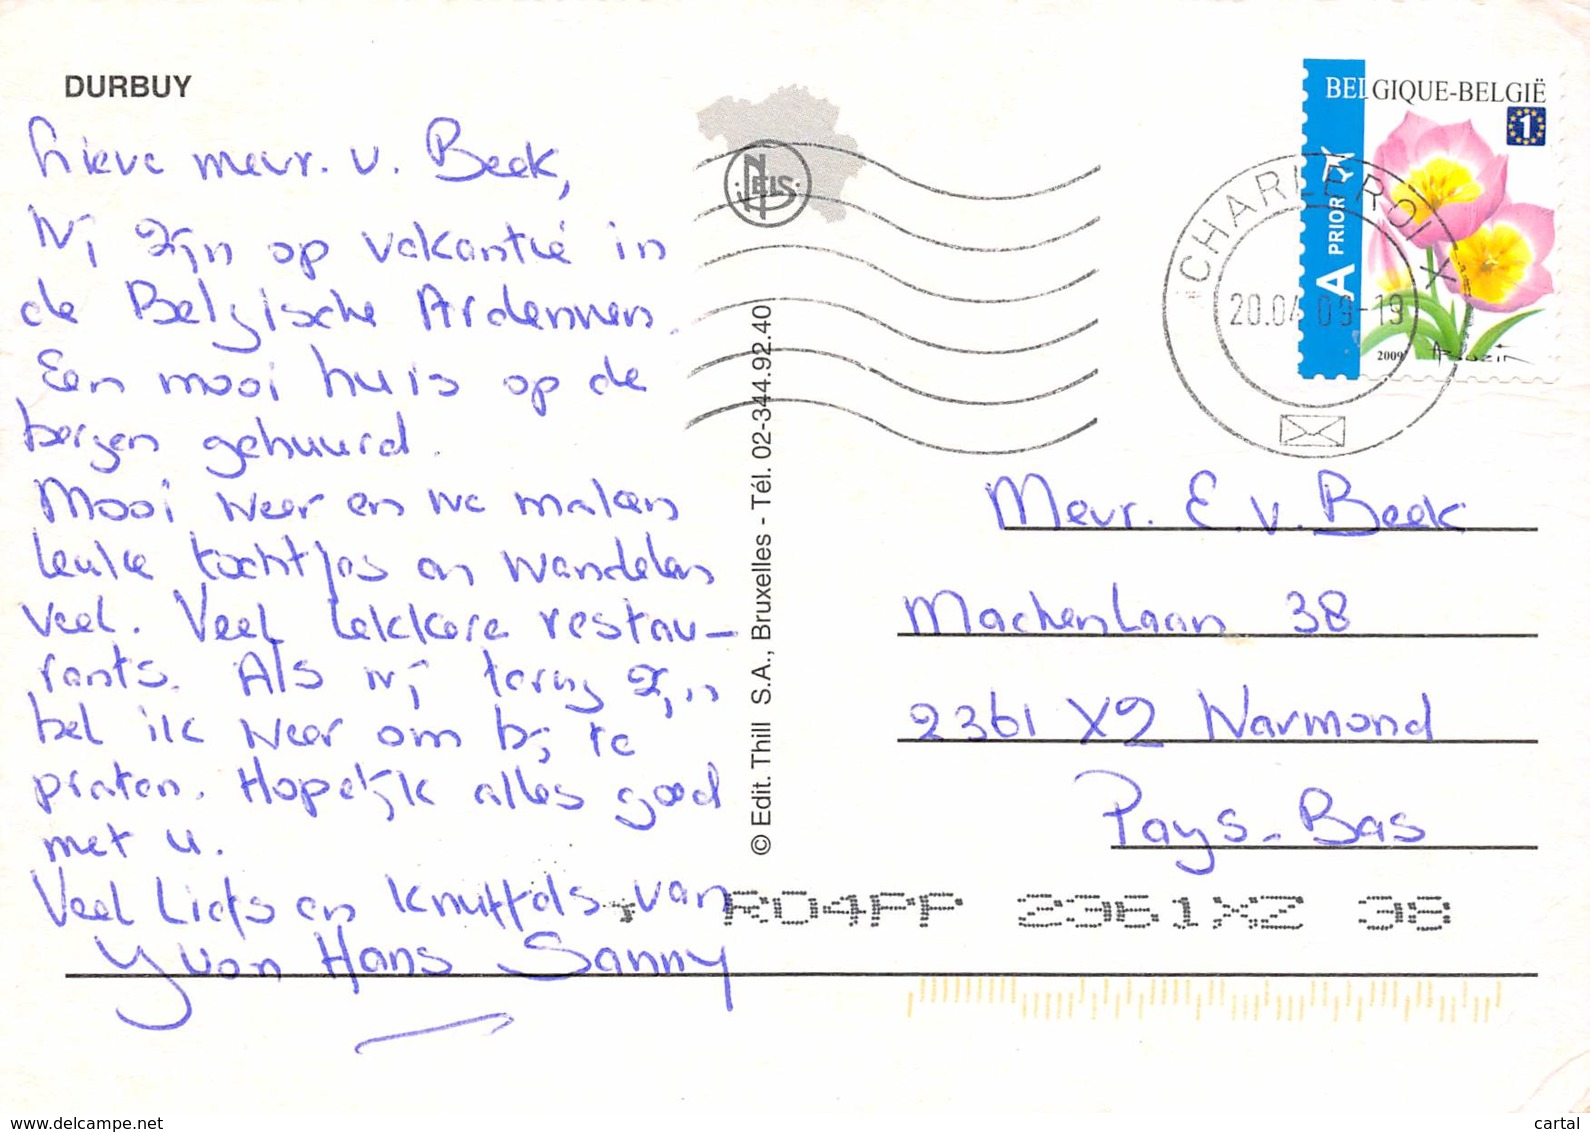 DURBUY
Lieve mevr. v. Beek,
Wij zijn op vakantie in
de Belgische Ardennen.
Een mooi huis op de
bergen gehuurd.
Mooi weer en we maken
leuke tochtjes en wandelen
veel. Veel lekkere restau-
rants. Als wij terug zijn
bel ik weer om bij te
praten. Hopelijk alles goed
met u.
Veel Liefs en knuffels van
Yvon Hans Sanny
NELS
© Edit. Thill S.A., Bruxelles - Tél. 02-344.92.40
BELGIQUE-BELGIË
1
A PRIOR
2009
CHARLEROI X
20.04 09-19
Mevr. E. v. Beek
Machenlaan 38
2361 XZ Warmond
Pays-Bas
R04PP 2361XZ 38
www.delcampe.net
cartal